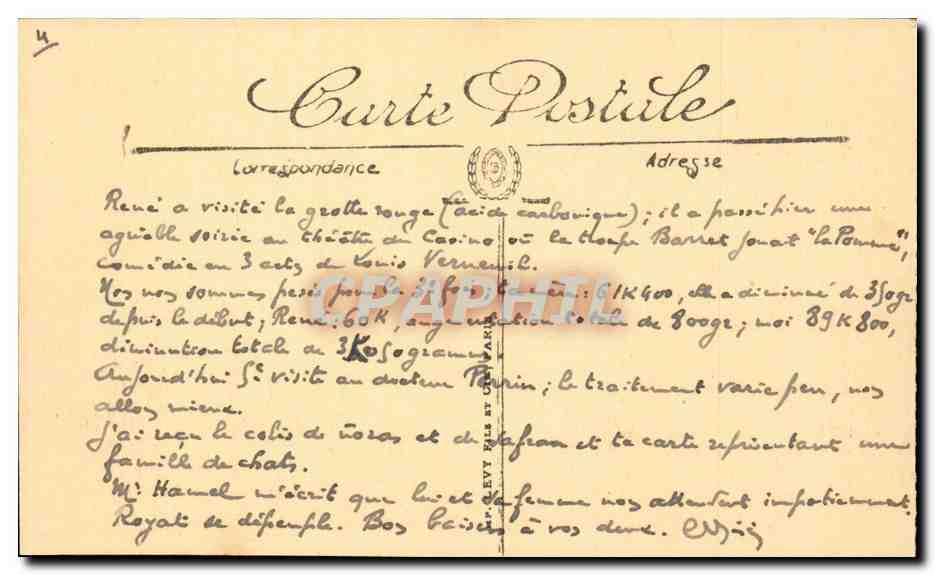 4
Carte Postale
Correspondance
Adresse
René a visité la grotte rouge (acide carbonique); il a passé hier une
agréable soirée au théâtre du Casino où la troupe Barret jouait "la Pomme",
comédie en 3 actes de Louis Verneuil.
Nos nos sommes pesés pour la 3e fois; ta mère: 61K400, elle a diminué de 350gr
depuis le début; René: 60K, augmentation totale de 800gr; moi 89K800,
diminution totale de 3K050grammes
Aujourd'hui 5e visite au docteur Perrin; le traitement varie peu, nos
allons mieux.
J'ai reçu le colis de et de safran et ta carte représentant une
famille de chats.
Mr Hamel m'écrit que lui et sa femme nos attendent impatiemment.
Royat se dépeuple. Bos baisers à vos deux.
LEVY FILS ET CIE PARIS
CPAPHIL